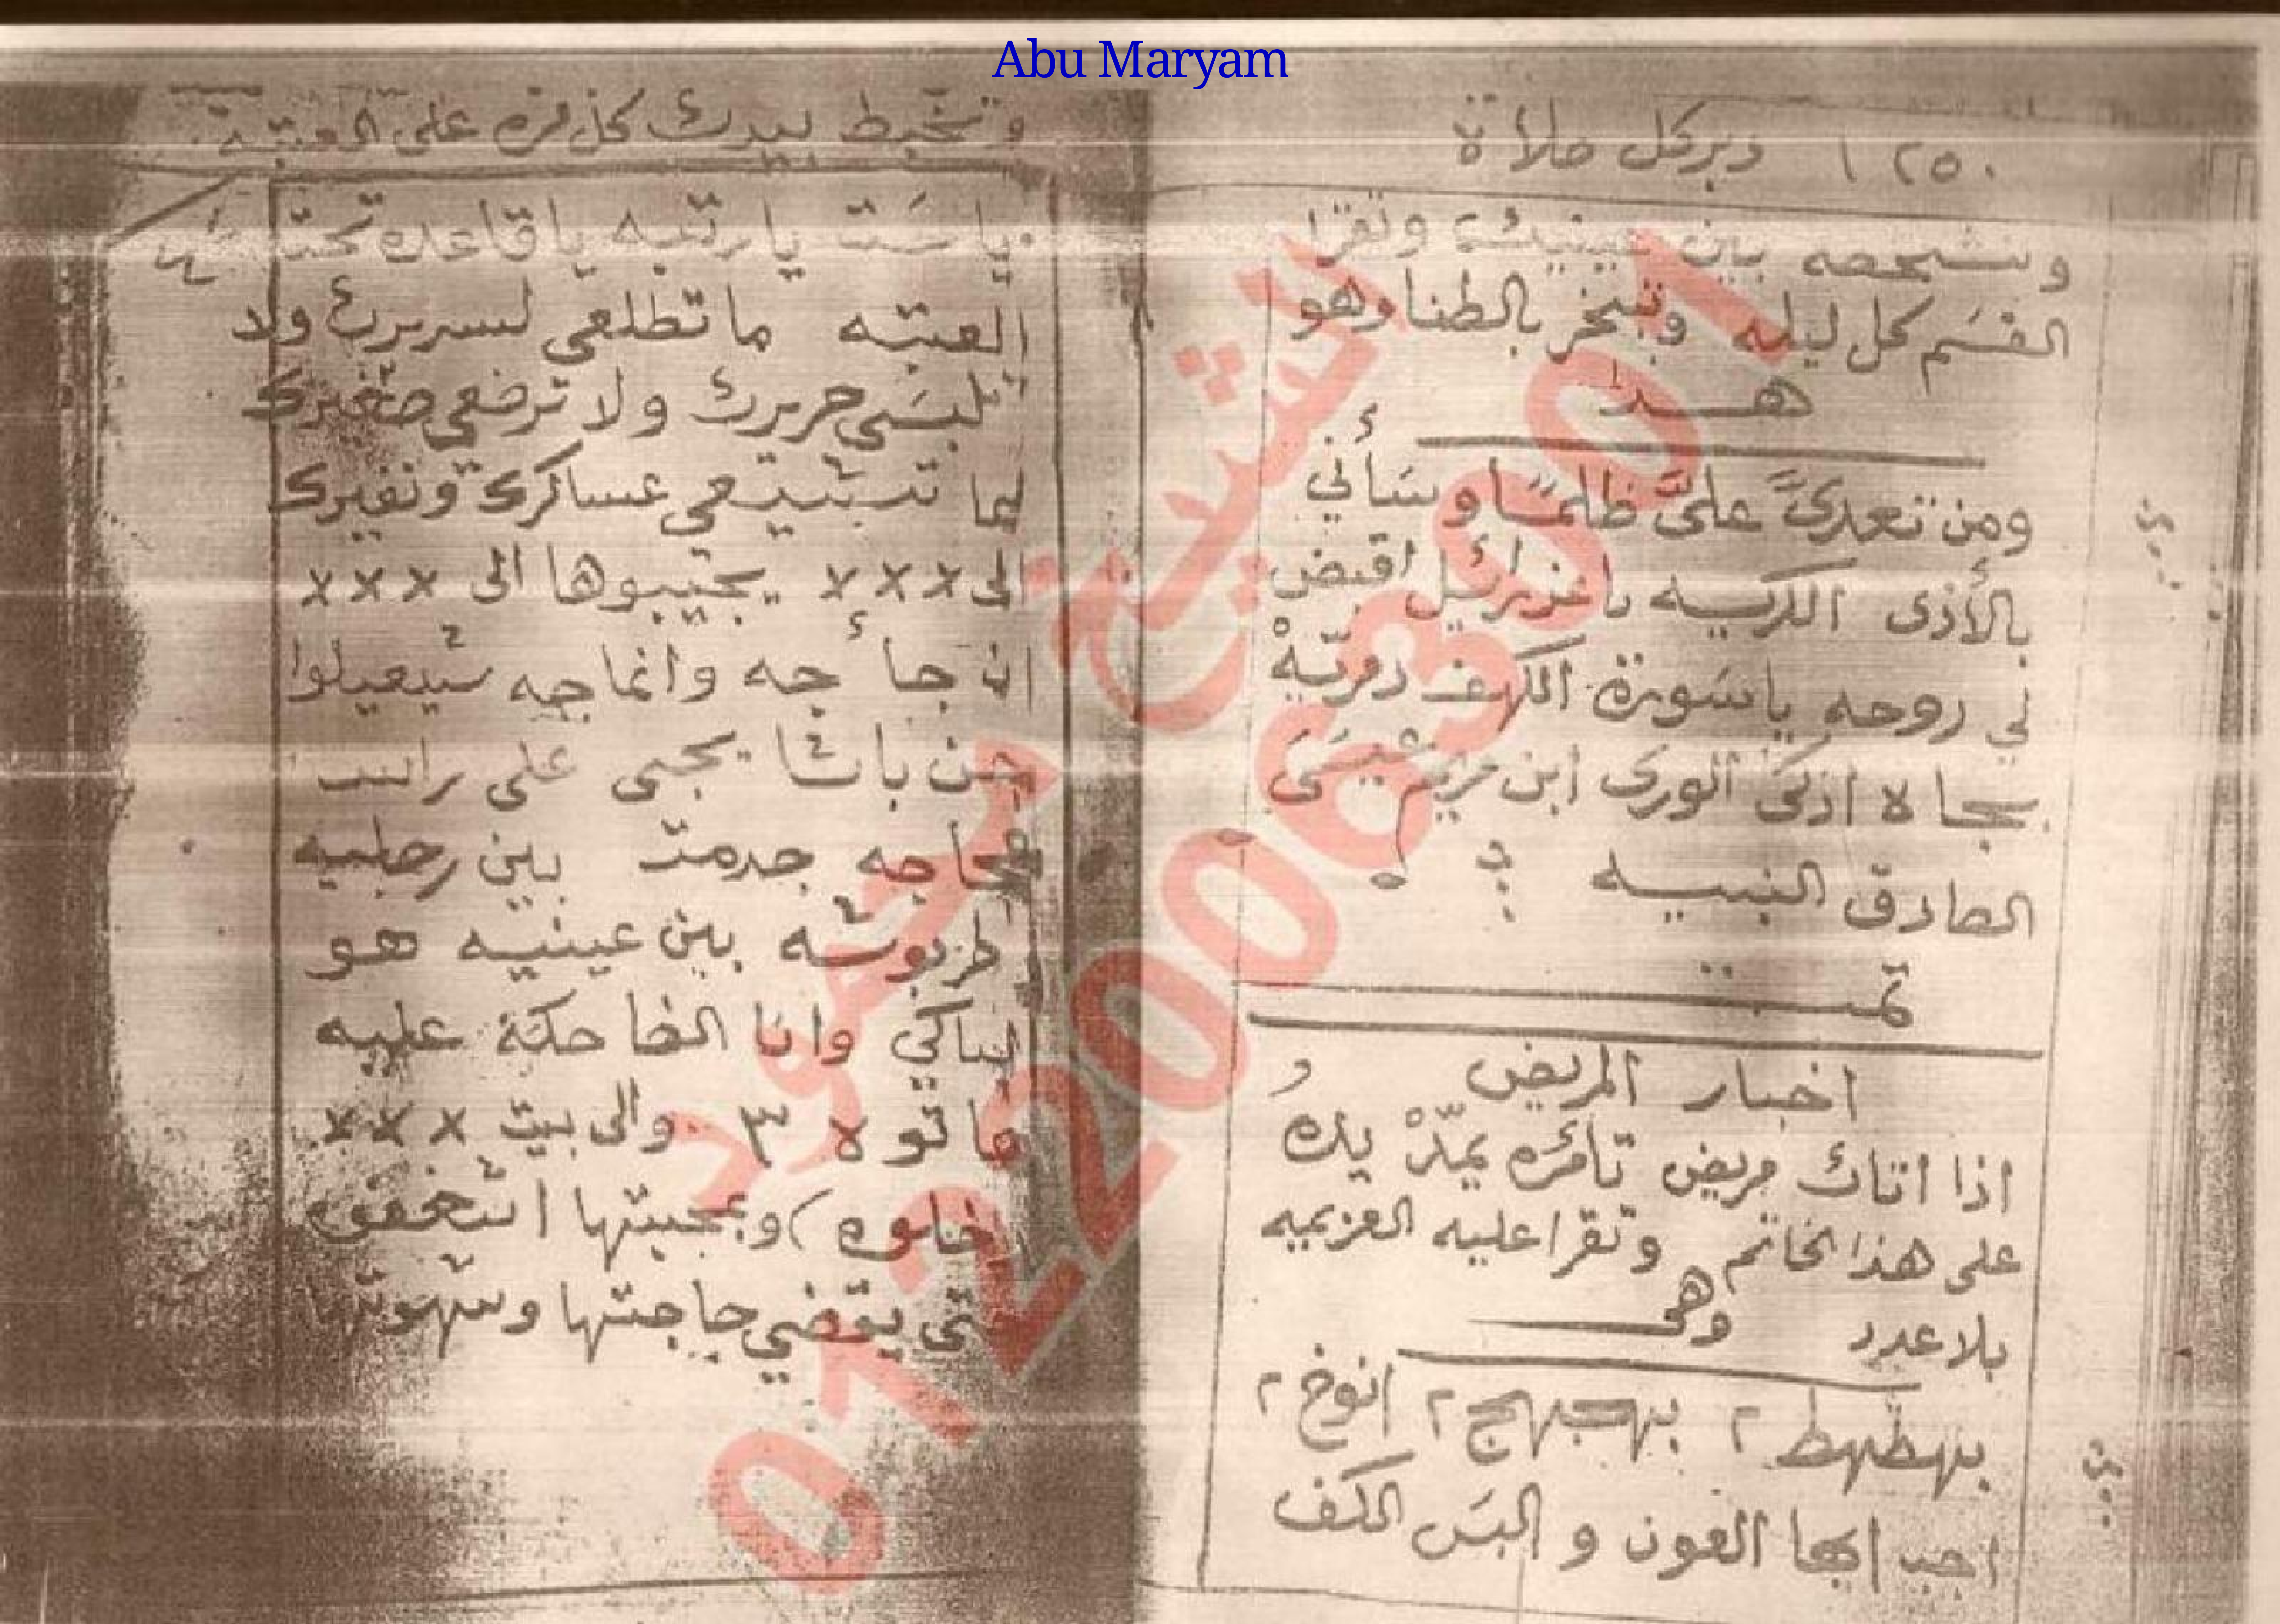 Abu Maryam
١٢٥٠ دبر كل صلاة
وتشخصه بين عينيك وتقرا
القسم كل ليله وتبخر بالطنا وهو
هذا
ومن تعدىَّ علىَّ ظلمًا وسَأني
بالأذى الكريه ياعزرائيل اقبض
لي روحه ياسورة الكهف دمريهْ
بجاه ازكى الورى ابن مريم عيسَى
الصادق النبيه
تمت
اخبار المريض
اذا اتاك مريض تأمره يمدّ يده
على هذا الخاتم وتقرا عليه العزيميه
بلا عدد وهى
بهطهط ٢ بهجبهج ٢ انوخ ٢
اجب ايها العون و البسَ الكف
وتخبط بيدك كل مره على العتبة
يا سَت يا رتبه يا قاعده تحت
العتبه ما تطلعى لسريرك ولا
تلبسَى حريرك ولا ترضعي صغيرك
ليما عساكرك ونفيرك
الى xxx يجيبوها الى xxx
ان جأ جه وانماجه شيعيلوا
جن باشا يجى على راسه
جه جدمت بين رجليه
طربوشه بين عينيه هو
الباكي وانا الضاحكة عليه
هاتوه ٣ والى بيت xxx
ادخلوه) وبمحبتها اشغفوه
حتى يقضي حاجتها وشهوتها
شيخ محمود
01220063001